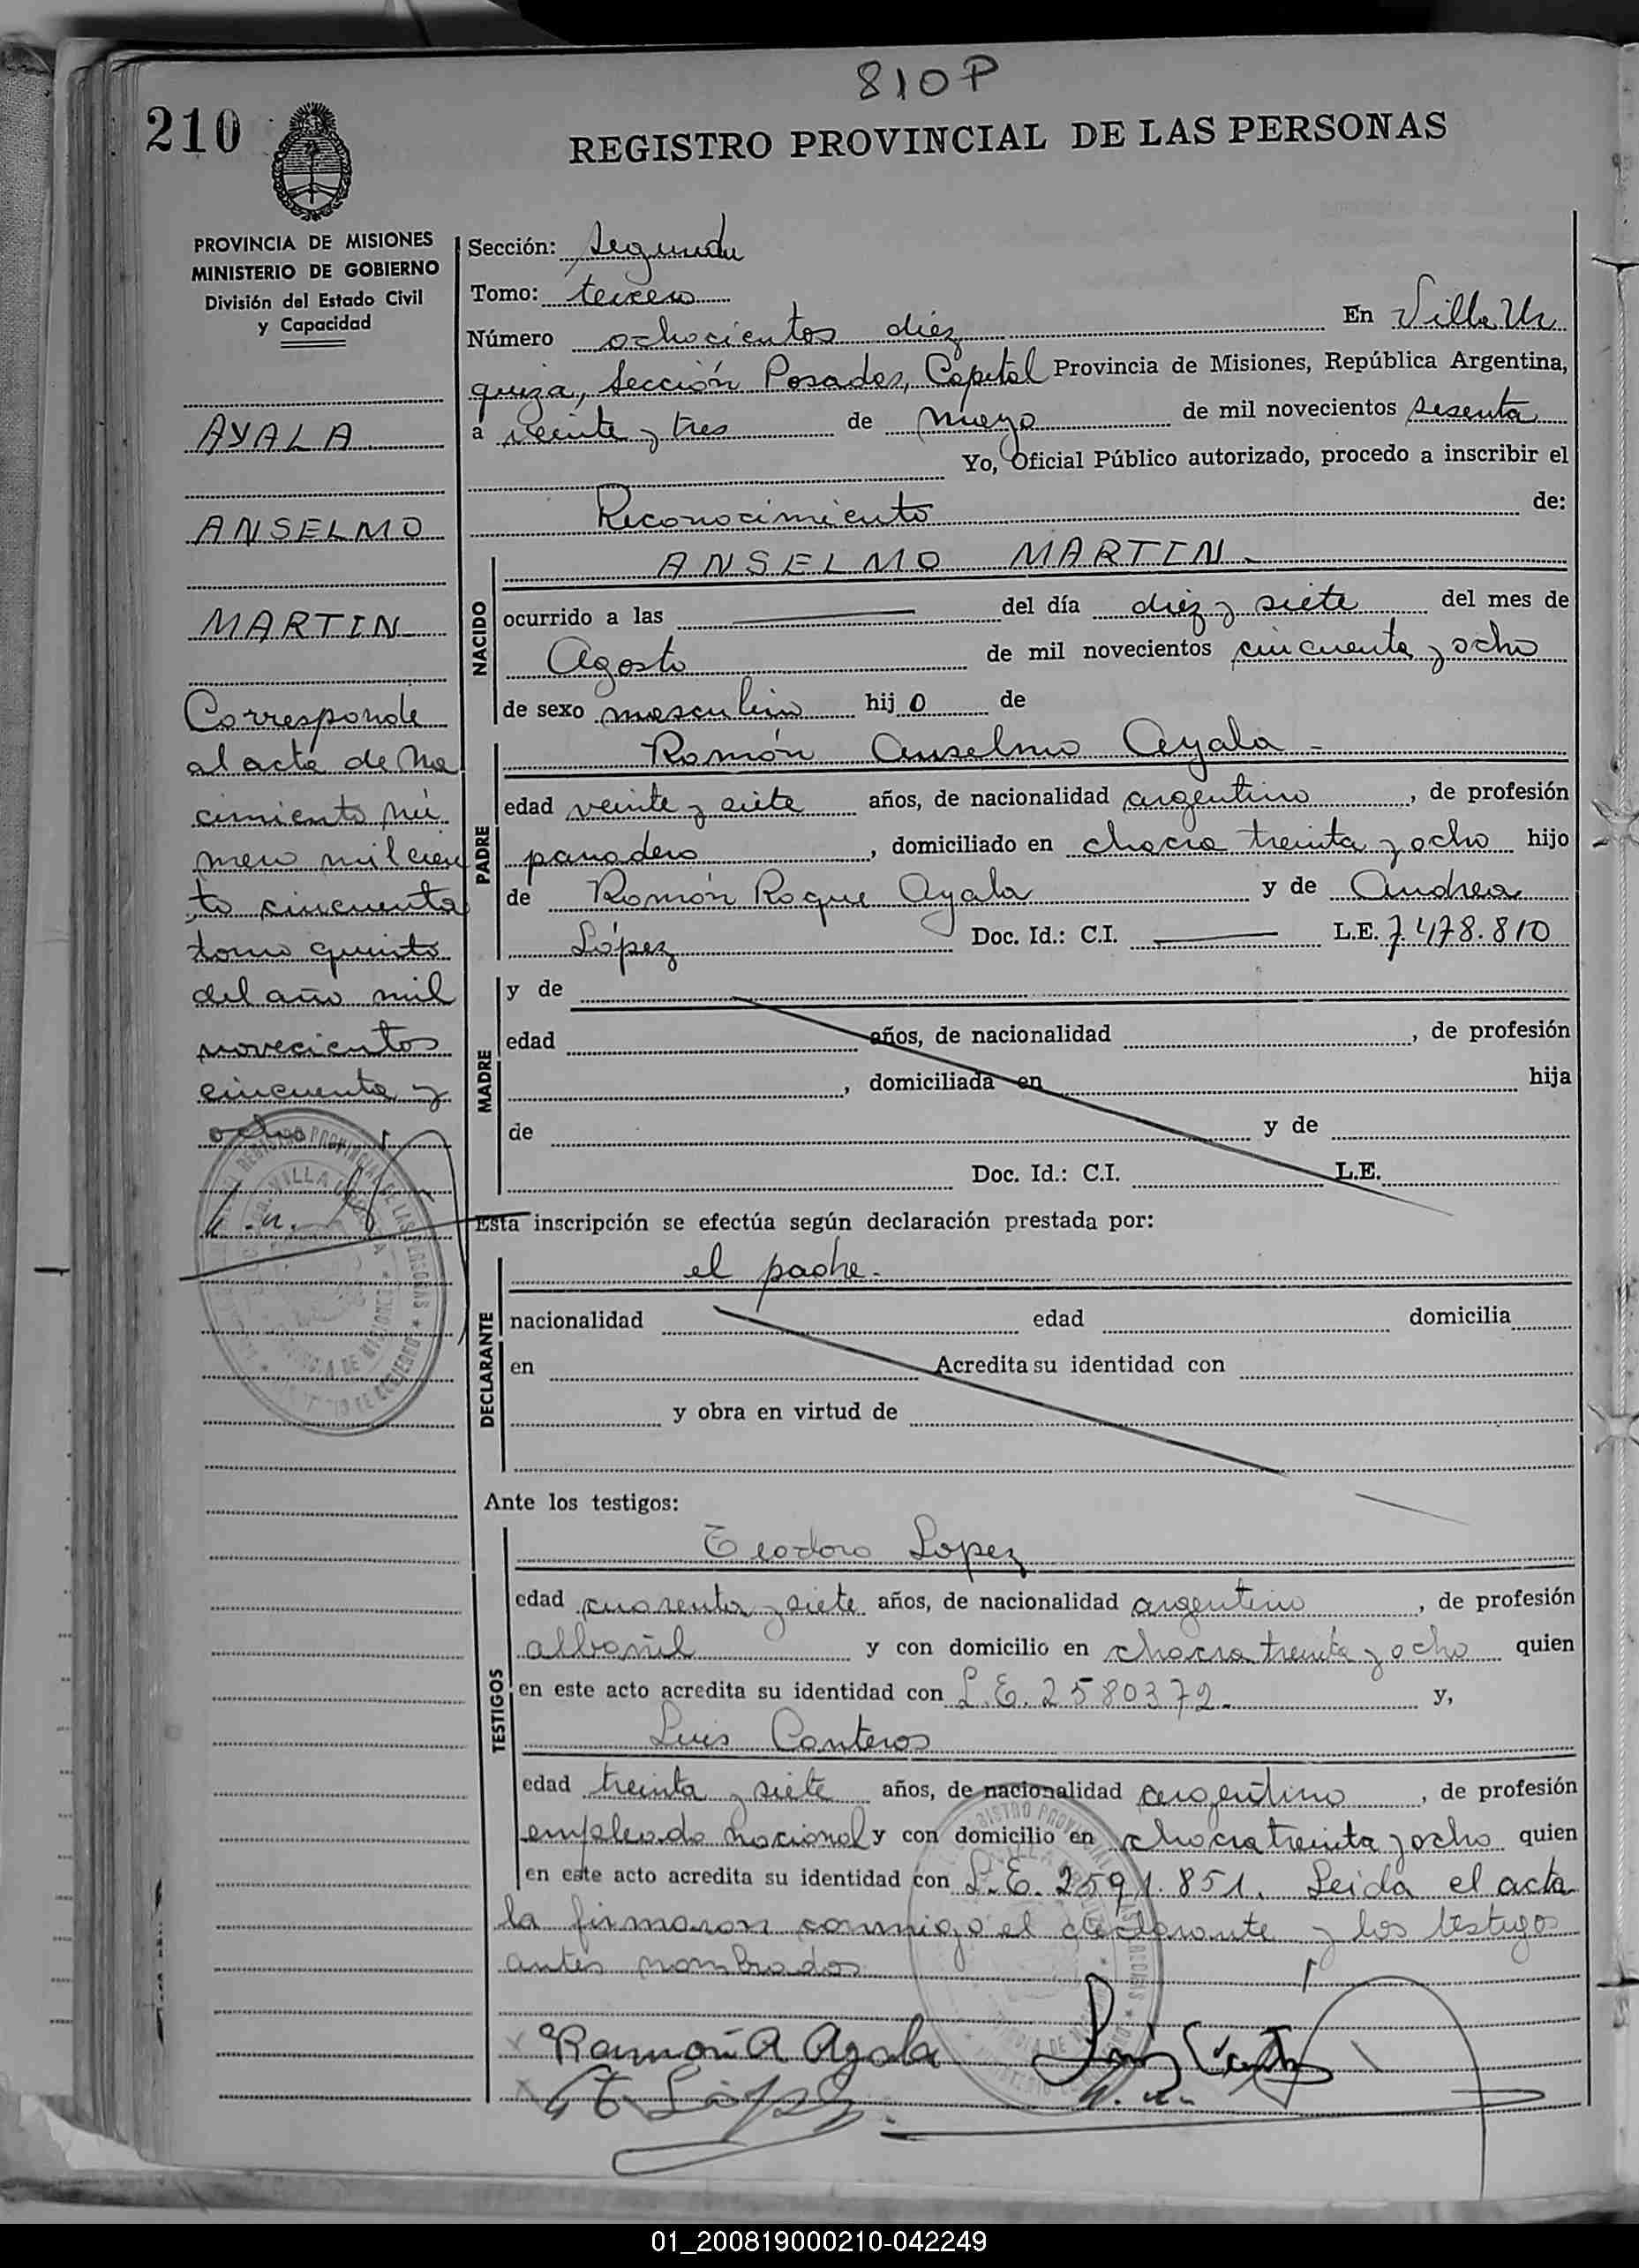 810P
210
REGISTRO PROVINCIAL DE LAS PERSONAS
PROVINCIA DE MISIONES
MINISTERIO DE GOBIERNO
División del Estado Civil
y Capacidad
AYALA
ANSELMO
MARTIN
Corresponde
al acta de na
cimiento nú
mero mil cien
to cincuenta
tomo quinto
del año mil
novecientos
cincuenta y
ocho
Sección: segunda
Tomo: tercero
Número ochocientos diez En Villa Ur
quiza, Sección Posadas, Capital Provincia de Misiones, República Argentina,
a veinte y tres de Mayo de mil novecientos sesenta
Yo, Oficial Público autorizado, procedo a inscribir el
Reconocimiento de:
NACIDO
ANSELMO MARTIN
ocurrido a las del día diez y siete del mes de
Agosto de mil novecientos cincuenta y ocho
de sexo masculino hijo de
PADRE
Ramón Anselmo Ayala
edad veinte y siete años, de nacionalidad argentino, de profesión
panadero, domiciliado en chacra treinta y ocho hijo
de Ramón Roque Ayala y de Andrea
López Doc. Id.: C.I. L.E. 7.478.810
MADRE
y de
edad años, de nacionalidad , de profesión
, domiciliada en hija
de y de
Doc. Id.: C.I. L.E.
Esta inscripción se efectúa según declaración prestada por:
DECLARANTE
el padre.
nacionalidad edad domicilia
en Acredita su identidad con
y obra en virtud de
Ante los testigos:
TESTIGOS
Teodoro Lopez
edad cuarenta y siete años, de nacionalidad argentino, de profesión
albañil y con domicilio en chacra treinta y ocho quien
en este acto acredita su identidad con L.E. 2580372. y,
Luis Canteros
edad treinta y siete años, de nacionalidad argentino, de profesión
empleado nacional y con domicilio en chacra treinta y ocho quien
en este acto acredita su identidad con L.E. 2591.851. Leida el acta
la firmaron conmigo el declarante y los testigos
antes nombrados
Ramón A Ayala
T. López
01_200819000210-042249